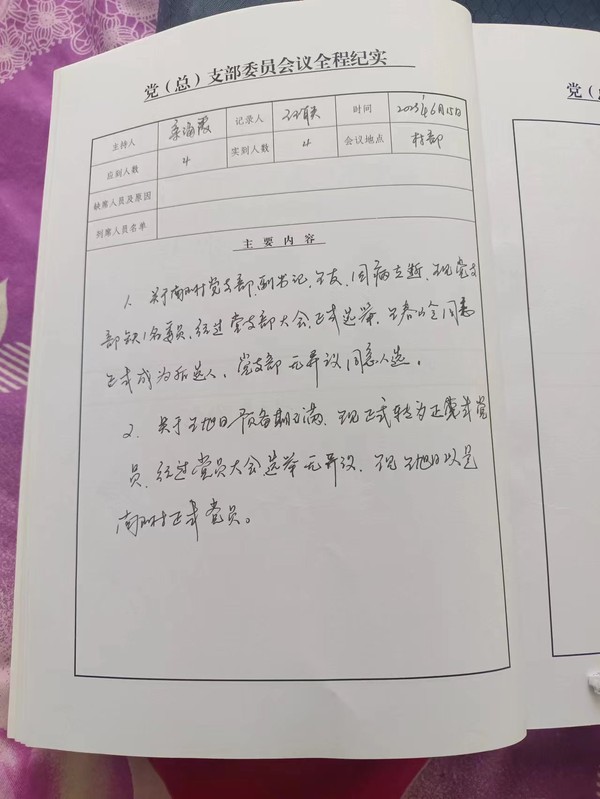 党（总）支部委员会议全程纪实
党（总
主持人 记录人 时间 2023年6月15日
应到人数 4 实到人数 4 会议地点 村部
缺席人员及原因
列席人员名单
主要内容
1、关于南 村党支部、副书记、王友、因病 ，现党支
部缺1名委员，经过党支部大会正式选举，王春 全 同意
正式成为 选人，党支部无异议同意人选。
2、关于王旭日预备期已满，现正式转为正 式党
员，经过党员大会选举无异议，现王旭日以是
南 村正式党员。